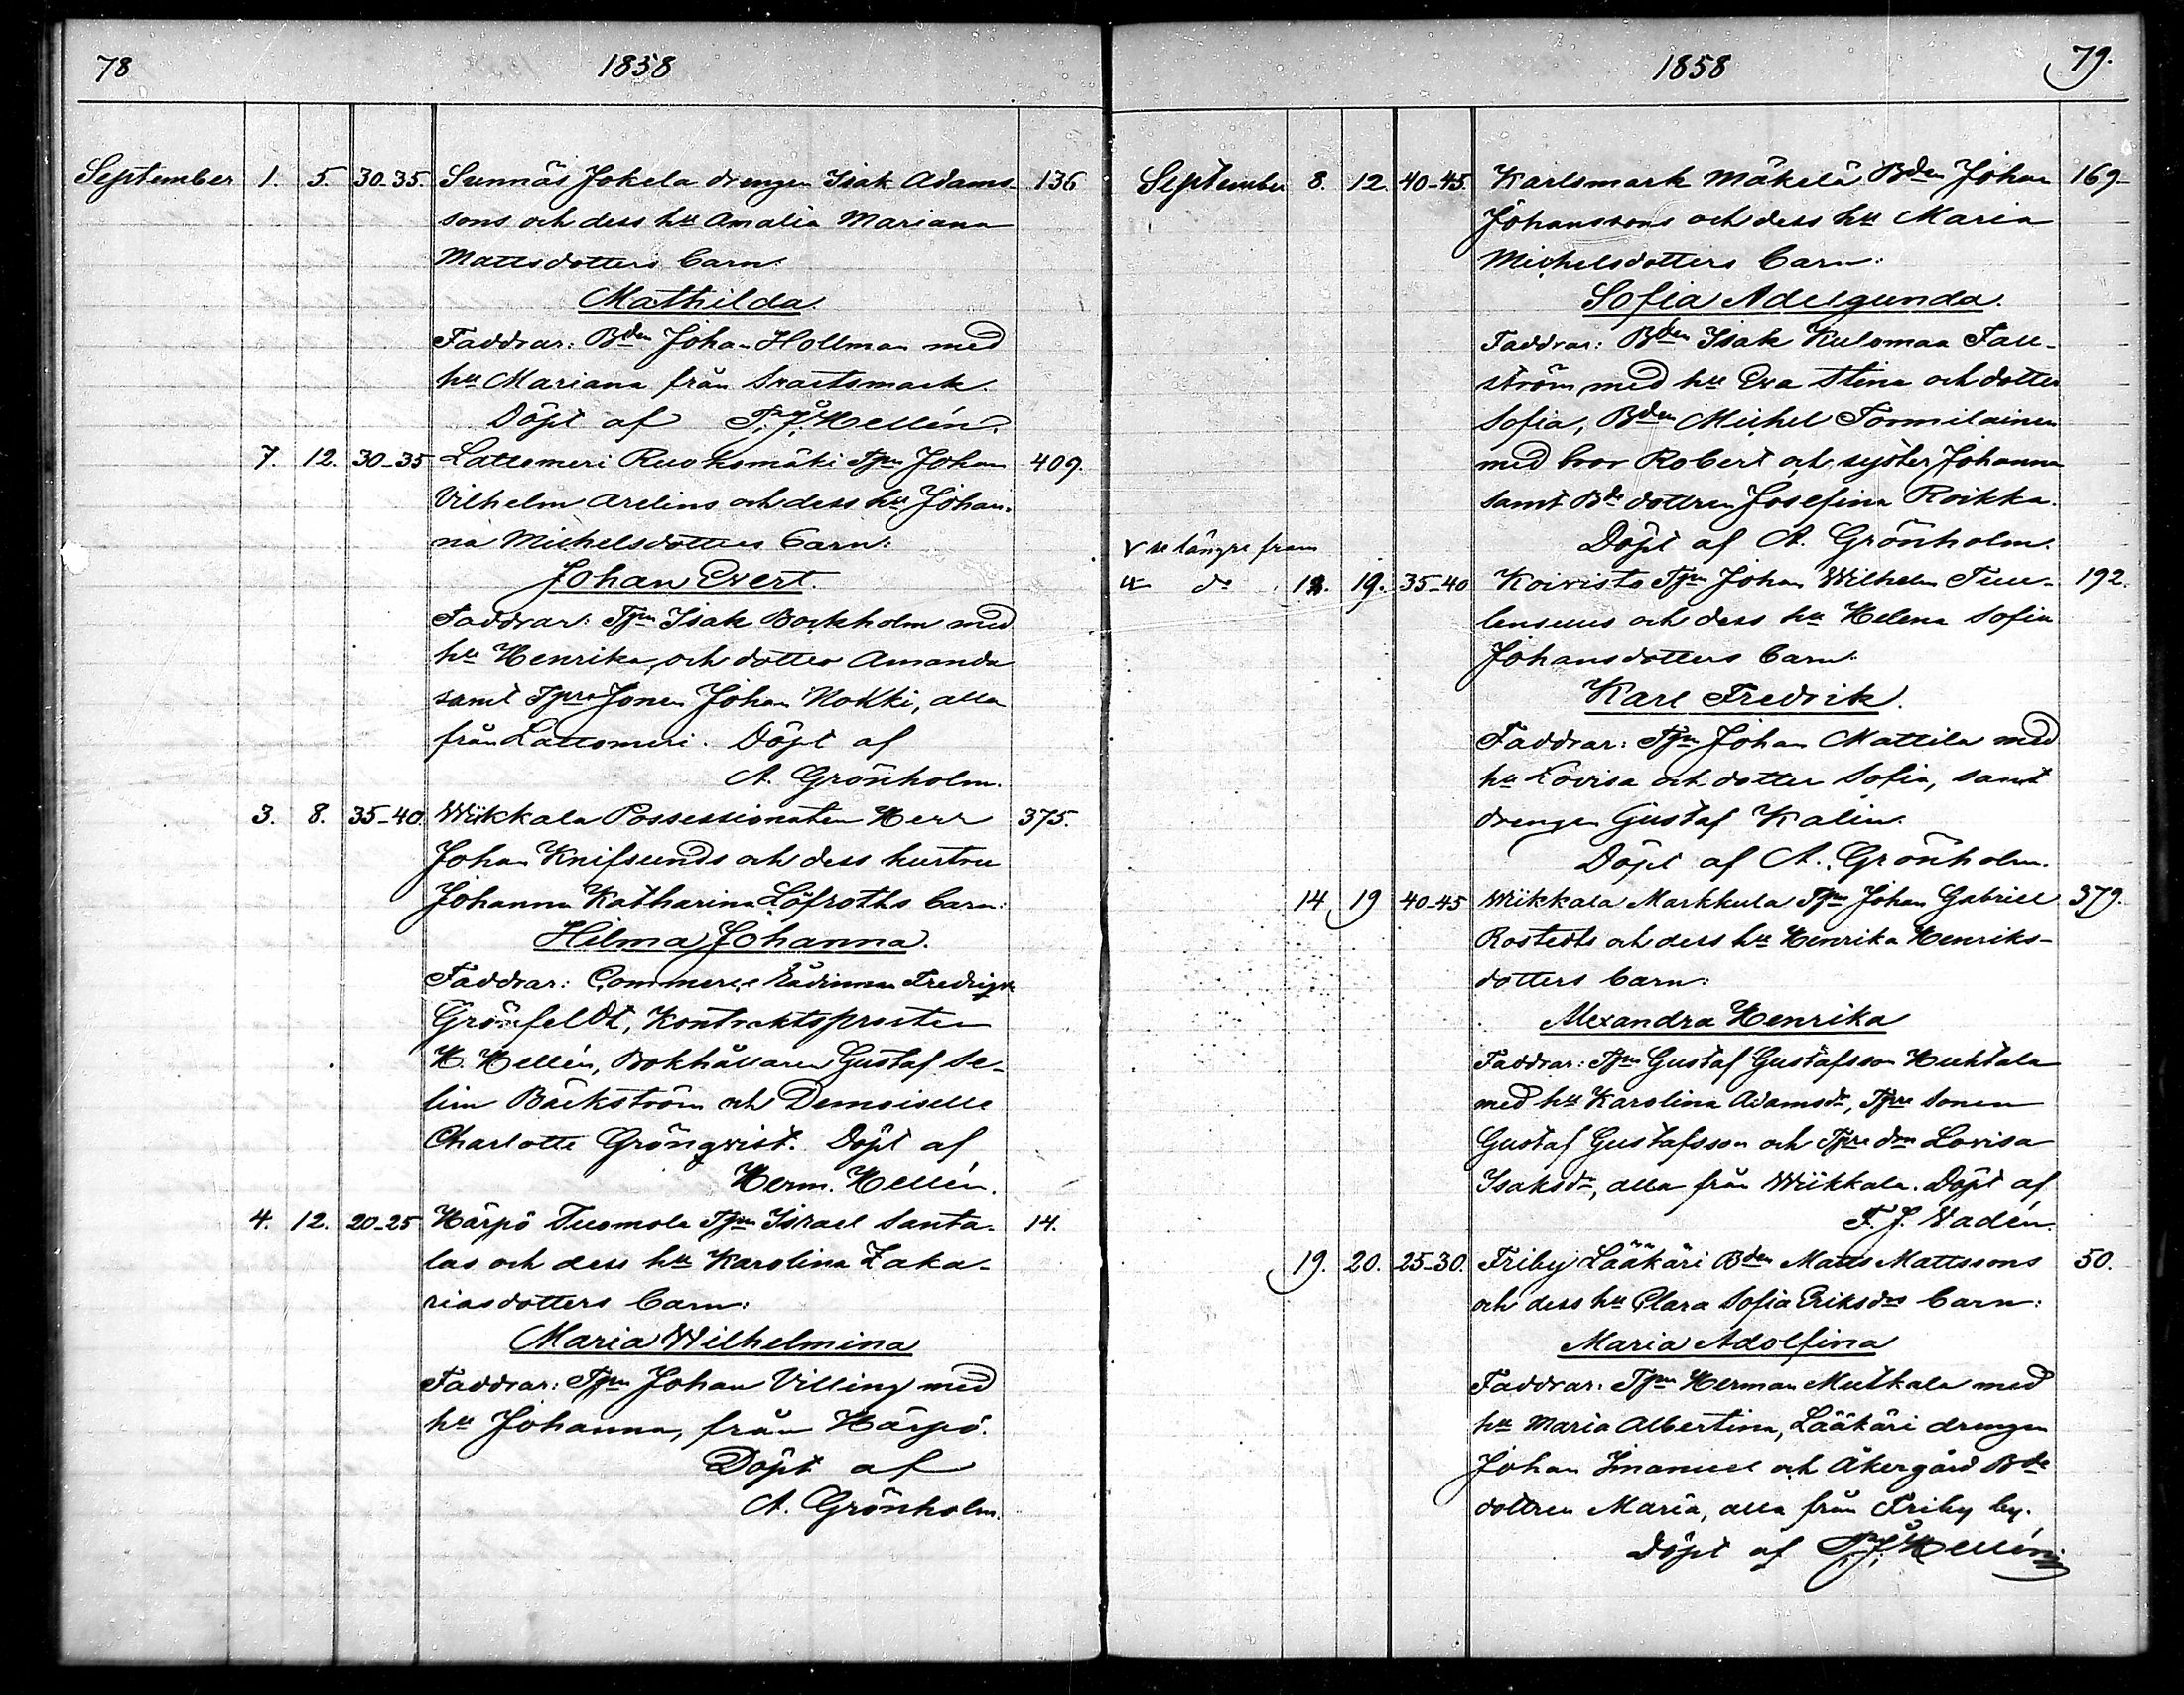 78 1858
September 1. 5. 30-35. Sunnäs Jokela drengen Isak Adams- 136
sons och dess hu Amalia Mariana
Mattsdotters barn:
Mathilda.
Faddrar: Bden Johan Hollman med
hu Mariana från Svartsmark.
Döpt af Hellén.
7. 12. 30-35 Lattomeri Ruohomäki Tpn Johan 409.
Vilhelm Arelins och dess hu Johan-
na Michelsdotters barn:
Johan Evert.
Faddrar: Tpn Isak Bockholm med
hu Henrika, och dotter Amanda
samt Tpre Jonen Johan Nokki, alla
från Lattomeri. Döpt af
A. Grönholm.
3. 8. 35-40. Wiikkala Possessionaten Herr 375.
Johan Knifsunds och dess hustru
Johanna Katharina Löfroths barn:
Hilma Johanna.
Faddrar: Commerce Rådinnan
Grönfeldt, Kontraktsprosten
H. Hellén, Bokhållaren Gustaf Se-
lim Bäckström och Demoiselle
Charlotte Grönqvist. Döpt af
Herm. Hellén.
4. 12. 20-25 Härpö Tuomola Tpn Israel Santa- 14.
las och dess hu Karolina Zaka-
riasdotters barn:
Maria Wilhelmina
Faddrar: Tpn Johan Villing med
hu Johanna, från Härpö.
Döpt af
A. Grönholm.
1858 79.
September 8. 12. 40-45. Karlsmark Mäkelä Bden Johan 169-
Johanssons och dess hu Maria
Michelsdotters barn:
Sofia Adelgunda.
Faddrar: Bden Isak Kulomaa Fall-
ström, med hu Eva Stina och dotter
Sofia, Bden Michel Tommilainen
med bror Robert och syster Johanna
samt Bde dottren Josefina Roikka.
Döpt af A. Grönholm.
v se längre fram
do 19. 35-40 Koivisto Tpn Johan Wilhelm Tuu- 192.
lensuus och dess hu Helena Sofia
Johansdotters barn:
Karl Fredrik.
Faddrar: Tpn Johan Mattila med
hu Lovisa och dotter Sofia, samt
drengen Gustaf Kalin.
Döpt af A. Grönholm.
14 19 40-45 Wiikkala Markkula Tpn Johan Gabriel 379.
Rostedts och dess hu Henrika Henriks-
dotters barn:
Alexandra Henrika
Faddrar: Tpn Gustaf Gustafsson Huhtala
med hu Karolina Adamsdr, Tpre sonen
Gustaf Gustafsson och Tpre drn Lovisa
Isaksdr, alla från Wiikkala. Döpt af
F. J. Vadén.
19. 20. 25-30. Friby Lääkäri Bden Matts Mattssons 50.
och dess hu Clara Sofia Eriksdrs barn:
Maria Adolfina
Faddrar: Tpn Herman Mutkala med
hu Maria Albertina, Lääkäri drengen
Johan Imanuel och Åkergård Bde
dottren Maria, alla från Friby by.
Döpt af Hellén